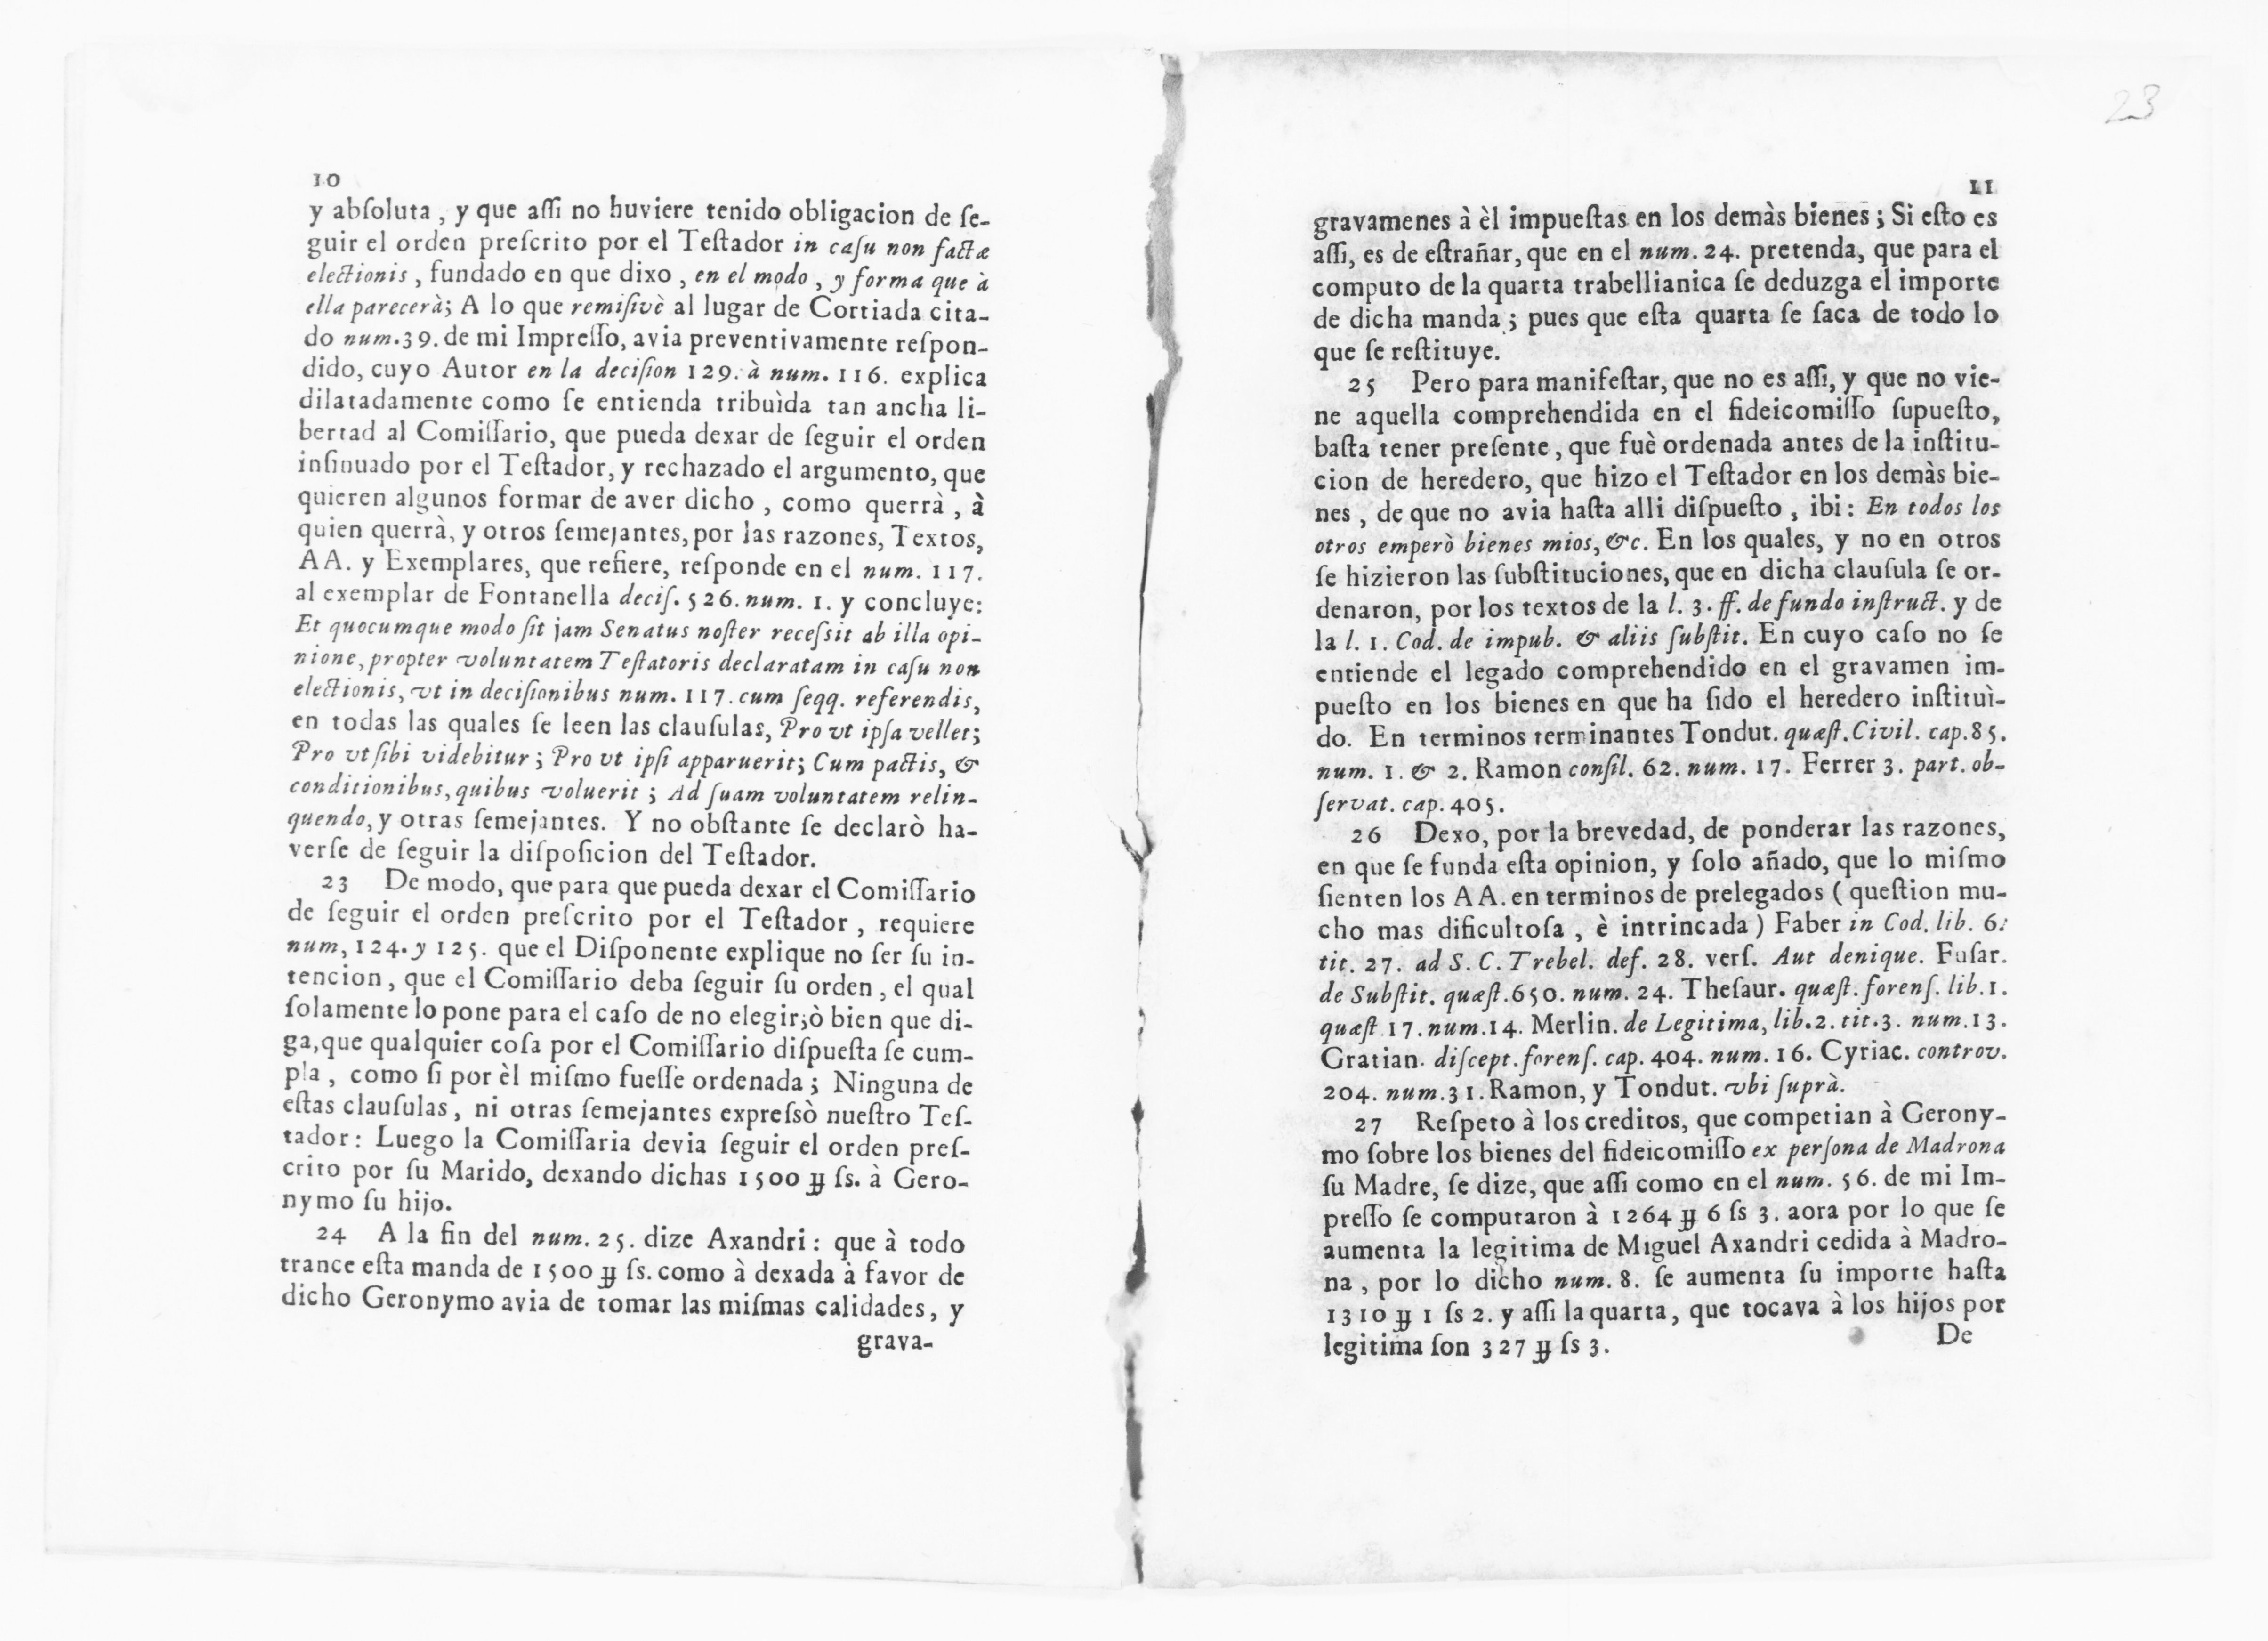 10
y abſoluta, y que aſſi no huviere tenido obligacion de ſe-
guir el orden preſcrito por el Teſtador in caſu non factæ
electionis, fundado en que dixo, en el modo, y forma que à
ella parecerà; A lo que remiſivè al lugar de Cortiada cita-
do num.39. de mi Impreſſo, avia preventivamente reſpon-
dido, cuyo Autor en la deciſion 129. à num. 116. explica
dilatadamente como ſe entienda tribuìda tan ancha li-
bertad al Comiſſario, que pueda dexar de ſeguir el orden
inſinuado por el Teſtador, y rechazado el argumento, que
quieren algunos formar de aver dicho, como querrà, à
quien querrà, y otros ſemejantes, por las razones, Textos,
AA. y Exemplares, que refiere, reſponde en el num. 117.
al exemplar de Fontanella deciſ. 526. num. 1. y concluye:
Et quocumque modo ſit jam Senatus noſter receſsit ab illa opi-
nione, propter voluntatem Teſtatoris declaratam in caſu non
electionis, vt in deciſionibus num. 117. cum ſeqq. referendis,
en todas las quales ſe leen las clauſulas, Pro vt ipſa vellet;
Pro vt ſibi videbitur; Pro vt ipſi apparuerit; Cum pactis, &
conditionibus, quibus voluerit; Ad ſuam voluntatem relin-
quendo, y otras ſemejantes. Y no obſtante ſe declarò ha-
verſe de ſeguir la diſpoſicion del Teſtador.
23 De modo, que para que pueda dexar el Comiſſario
de ſeguir el orden preſcrito por el Teſtador, requiere
num, 124. y 125. que el Diſponente explique no ſer ſu in-
tencion, que el Comiſſario deba ſeguir ſu orden, el qual
ſolamente lo pone para el caſo de no elegir;ò bien que di-
ga,que qualquier coſa por el Comiſſario diſpueſta ſe cum-
pla, como ſi por èl miſmo fueſſe ordenada; Ninguna de
eſtas clauſulas, ni otras ſemejantes expreſsò nueſtro Teſ-
tador: Luego la Comiſſaria devia ſeguir el orden preſ-
crito por ſu Marido, dexando dichas 1500 ₶ ſs. à Gero-
nymo ſu hijo.
24 A la fin del num. 25. dize Axandri: que à todo
trance eſta manda de 1500 ₶ ſs. como à dexada à favor de
dicho Geronymo avia de tomar las miſmas calidades, y
grava-
23
11
gravamenes à èl impueſtas en los demàs bienes; Si eſto es
aſſi, es de eſtrañar, que en el num. 24. pretenda, que para el
computo de la quarta trabellianica ſe deduzga el importe
de dicha manda; pues que eſta quarta ſe ſaca de todo lo
que ſe reſtituye.
25 Pero para manifeſtar, que no es aſſi, y que no vie-
ne aquella comprehendida en el fideicomiſſo ſupueſto,
baſta tener preſente, que fuè ordenada antes de la inſtitu-
cion de heredero, que hizo el Teſtador en los demàs bie-
nes, de que no avia haſta alli diſpueſto, ibi: En todos los
otros emperò bienes mios, &c. En los quales, y no en otros
ſe hizieron las ſubſtituciones, que en dicha clauſula ſe or-
denaron, por los textos de la l. 3. ff. de fundo inſtruct. y de
la l. 1. Cod. de impub. & aliis ſubſtit. En cuyo caſo no ſe
entiende el legado comprehendido en el gravamen im-
pueſto en los bienes en que ha ſido el heredero inſtituì-
do. En terminos terminantes Tondut. quæſt. Civil. cap.85.
num. 1. & 2. Ramon conſil. 62. num. 17. Ferrer 3. part. ob-
ſervat. cap. 405.
26 Dexo, por la brevedad, de ponderar las razones,
en que ſe funda eſta opinion, y ſolo añado, que lo miſmo
ſienten los AA. en terminos de prelegados (queſtion mu-
cho mas dificultoſa, è intrincada) Faber in Cod. lib. 6.
tit. 27. ad S. C. Trebel. def. 28. verſ. Aut denique. Fuſar.
de Subſtit. quæſt.650. num. 24. Theſaur. quæſt. forenſ. lib.1.
quæſt 17. num.14. Merlin. de Legitima, lib.2. tit.3. num.13.
Gratian. diſcept. forenſ. cap. 404. num. 16. Cyriac. controv.
204. num.31. Ramon, y Tondut. vbi ſuprà.
27 Reſpeto à los creditos, que competian à Gerony-
mo ſobre los bienes del fideicomiſſo ex perſona de Madrona
ſu Madre, ſe dize, que aſſi como en el num. 56. de mi Im-
preſſo ſe computaron à 1264 ₶ 6 ſs 3. aora por lo que ſe
aumenta la legitima de Miguel Axandri cedida à Madro-
na, por lo dicho num. 8. ſe aumenta ſu importe haſta
1310 ₶ 1 ſs 2. y aſſi la quarta, que tocava à los hijos por
legitima ſon 327 ₶ ſs 3.
De